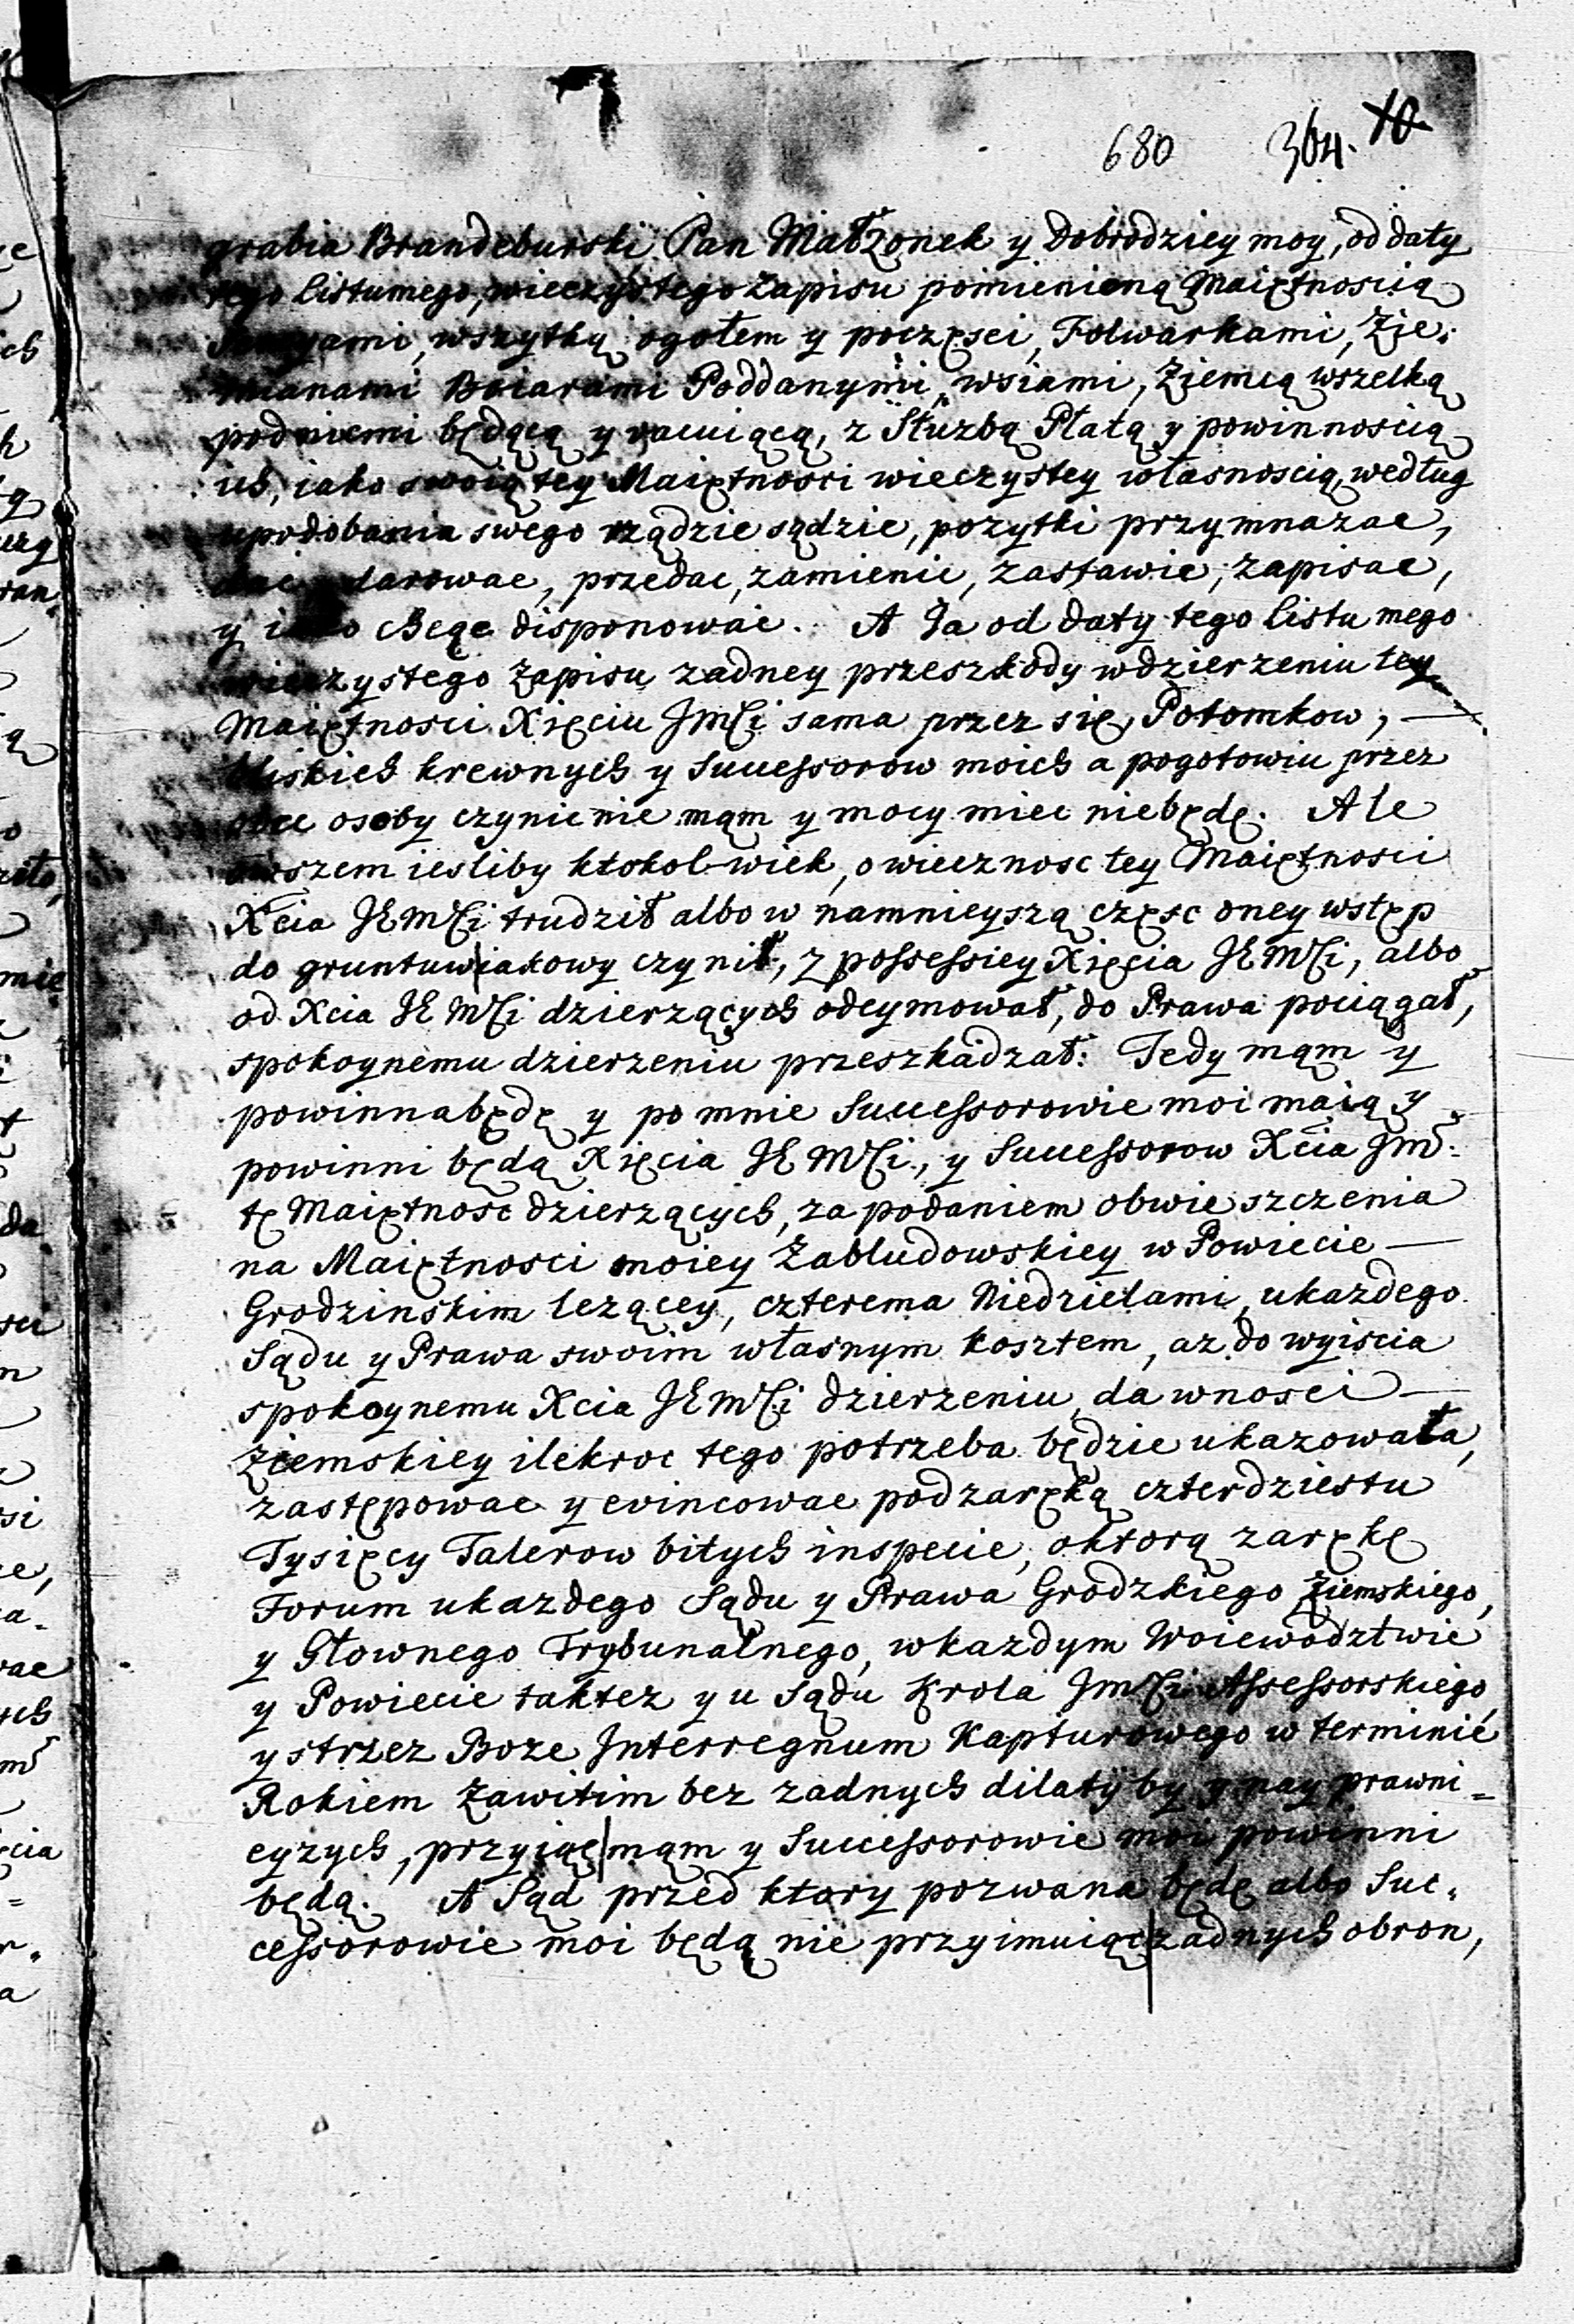 680 364. 10
grabia Brandeburski Pan Małżonek y Dobrodziey moy, od daty
tego listu mego, wieczystego Zapisu pomienioną Maiętnoscią
wszytką ogołem y poczęsci, Folwarkami, Zie-
mianami Boiarami Poddanymi, wsiami, Ziemią wszelką
pod niemi będącą y vacuiącą, z Służbą Płatą y powinnoscią
ich, iako swoią tey Maiętnosci wieczystey własnoscią, według
upodobania swego rządzic sądzic, pozytki przymnazac,
dac darowac, przedac, zamienic, zastawic, zapisac,
y iako chcąc disponowac. A Ja od daty tego listu mego
wieczystego Zapisu zadney przeszkody w dzierzeniu tey
Maiętnosci Xięciu JmSci sama przez się, Potomkow, —
bliskich krewnych y Successorow moich a pogotowiu przez
obce osoby czynic nie mąm y mocy miec niebędę. Ale
owszem iesliby ktokolwiek, o wiecznosc tey Maiętnosci
Xcia JEMSci trudził albo w namnieyszą częsc oney wstęp
do gruntuw iakowy czynił, z possessiey Xięcia JEMSci, albo
od Xcia JEMSci dzierzących odeymował, do Prawa pociągał,
spokoynemu dzierzeniu przeszkadzał: Tedy mąm y
powinna będę y po mnie Successorowie moi maią y
powinni będą Xięcia JEMSci, y Successorow Xcia Jm:
tę Maiętnosc dzierzących, za podaniem obwieszczenia
na Maiętnosci moiey Zabludowskiey w Powiecie —
Grodzinskim lezącey, czterema Niedzielami, ukazdego
Sądu y Prawa swoim własnym kosztem, az do wyiscia
spokoynemu Xcia JEMSci dzierzeniu, dawnosci —
Ziemskiey ilekroc tego potrzeba będzie ukazowała,
zastępowac y evincowac pod zaręką czterdziestu
Tysięcy Talerow bitych inspecie, o ktorą zarękę
Forum ukazdego Sądu y Prawa Grodzkiego Ziemskiego,
y Głownego Trybunalnego, w kazdym Woiewodztwie
y Powiecie taktez y u Sądu Krola JmSci Assessorskiego,
y strzez Boze Interregnum Kapturowego w terminie
Rokiem Zawitim bez zadnych dilaty by y nay prawni=
eyzych, przyiąc mąm y Successorowie moi powinni
będą. A Sąd przed ktory pozwana będę albo Suc-
cessorowie moi będą nie przyimuiąc zadnych obron,